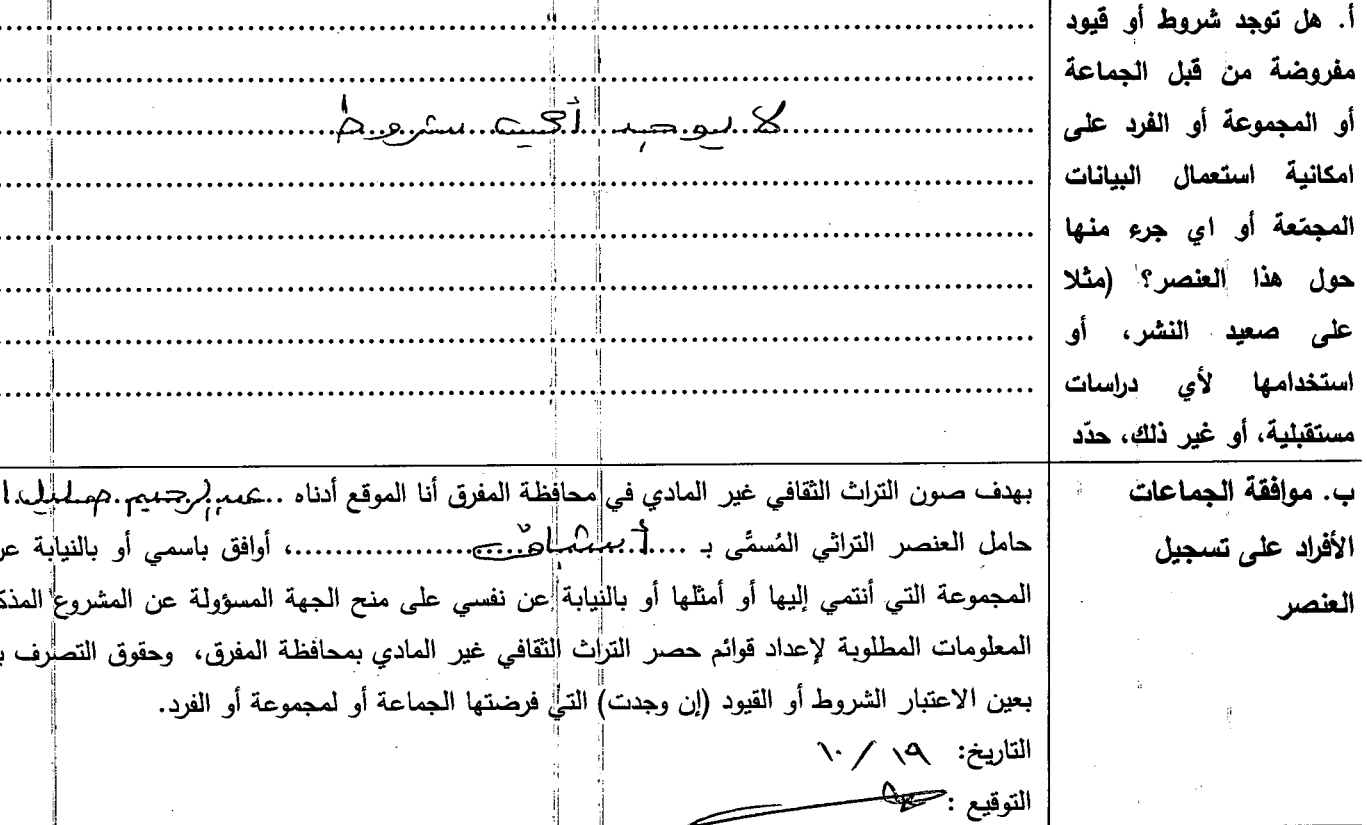 أ. هل توجد شروط أو قيود
مفروضة من قبل الجماعة
أو المجموعة أو الفرد على
امكانية استعمال البيانات
المجمّعة أو اي جرء منها
حول هذا العنصر؟ (مثلا
على صعيد النشر، أو
استخدامها لأي دراسات
مستقبلية، أو غير ذلك، حدّد
لا يوجد أي شروط
ب. موافقة الجماعات
الأفراد على تسجيل
العنصر
بهدف صون التراث الثقافي غير المادي في محافظة المفرق أنا الموقع أدناه ..عبد الرحيم
حامل العنصر التراثي المُسمَّى بـ ..................، أوافق باسمي أو بالنيابة عن
المجموعة التي أنتمي إليها أو أمثلها أو بالنيابة عن نفسي على منح الجهة المسؤولة عن المشروع المذك
المعلومات المطلوبة لإعداد قوائم حصر التراث الثقافي غير المادي بمحافظة المفرق، وحقوق التصرف ب
بعين الاعتبار الشروط أو القيود (إن وجدت) التي فرضتها الجماعة أو لمجموعة أو الفرد.
التاريخ: ١٩ / ١٠
التوقيع :